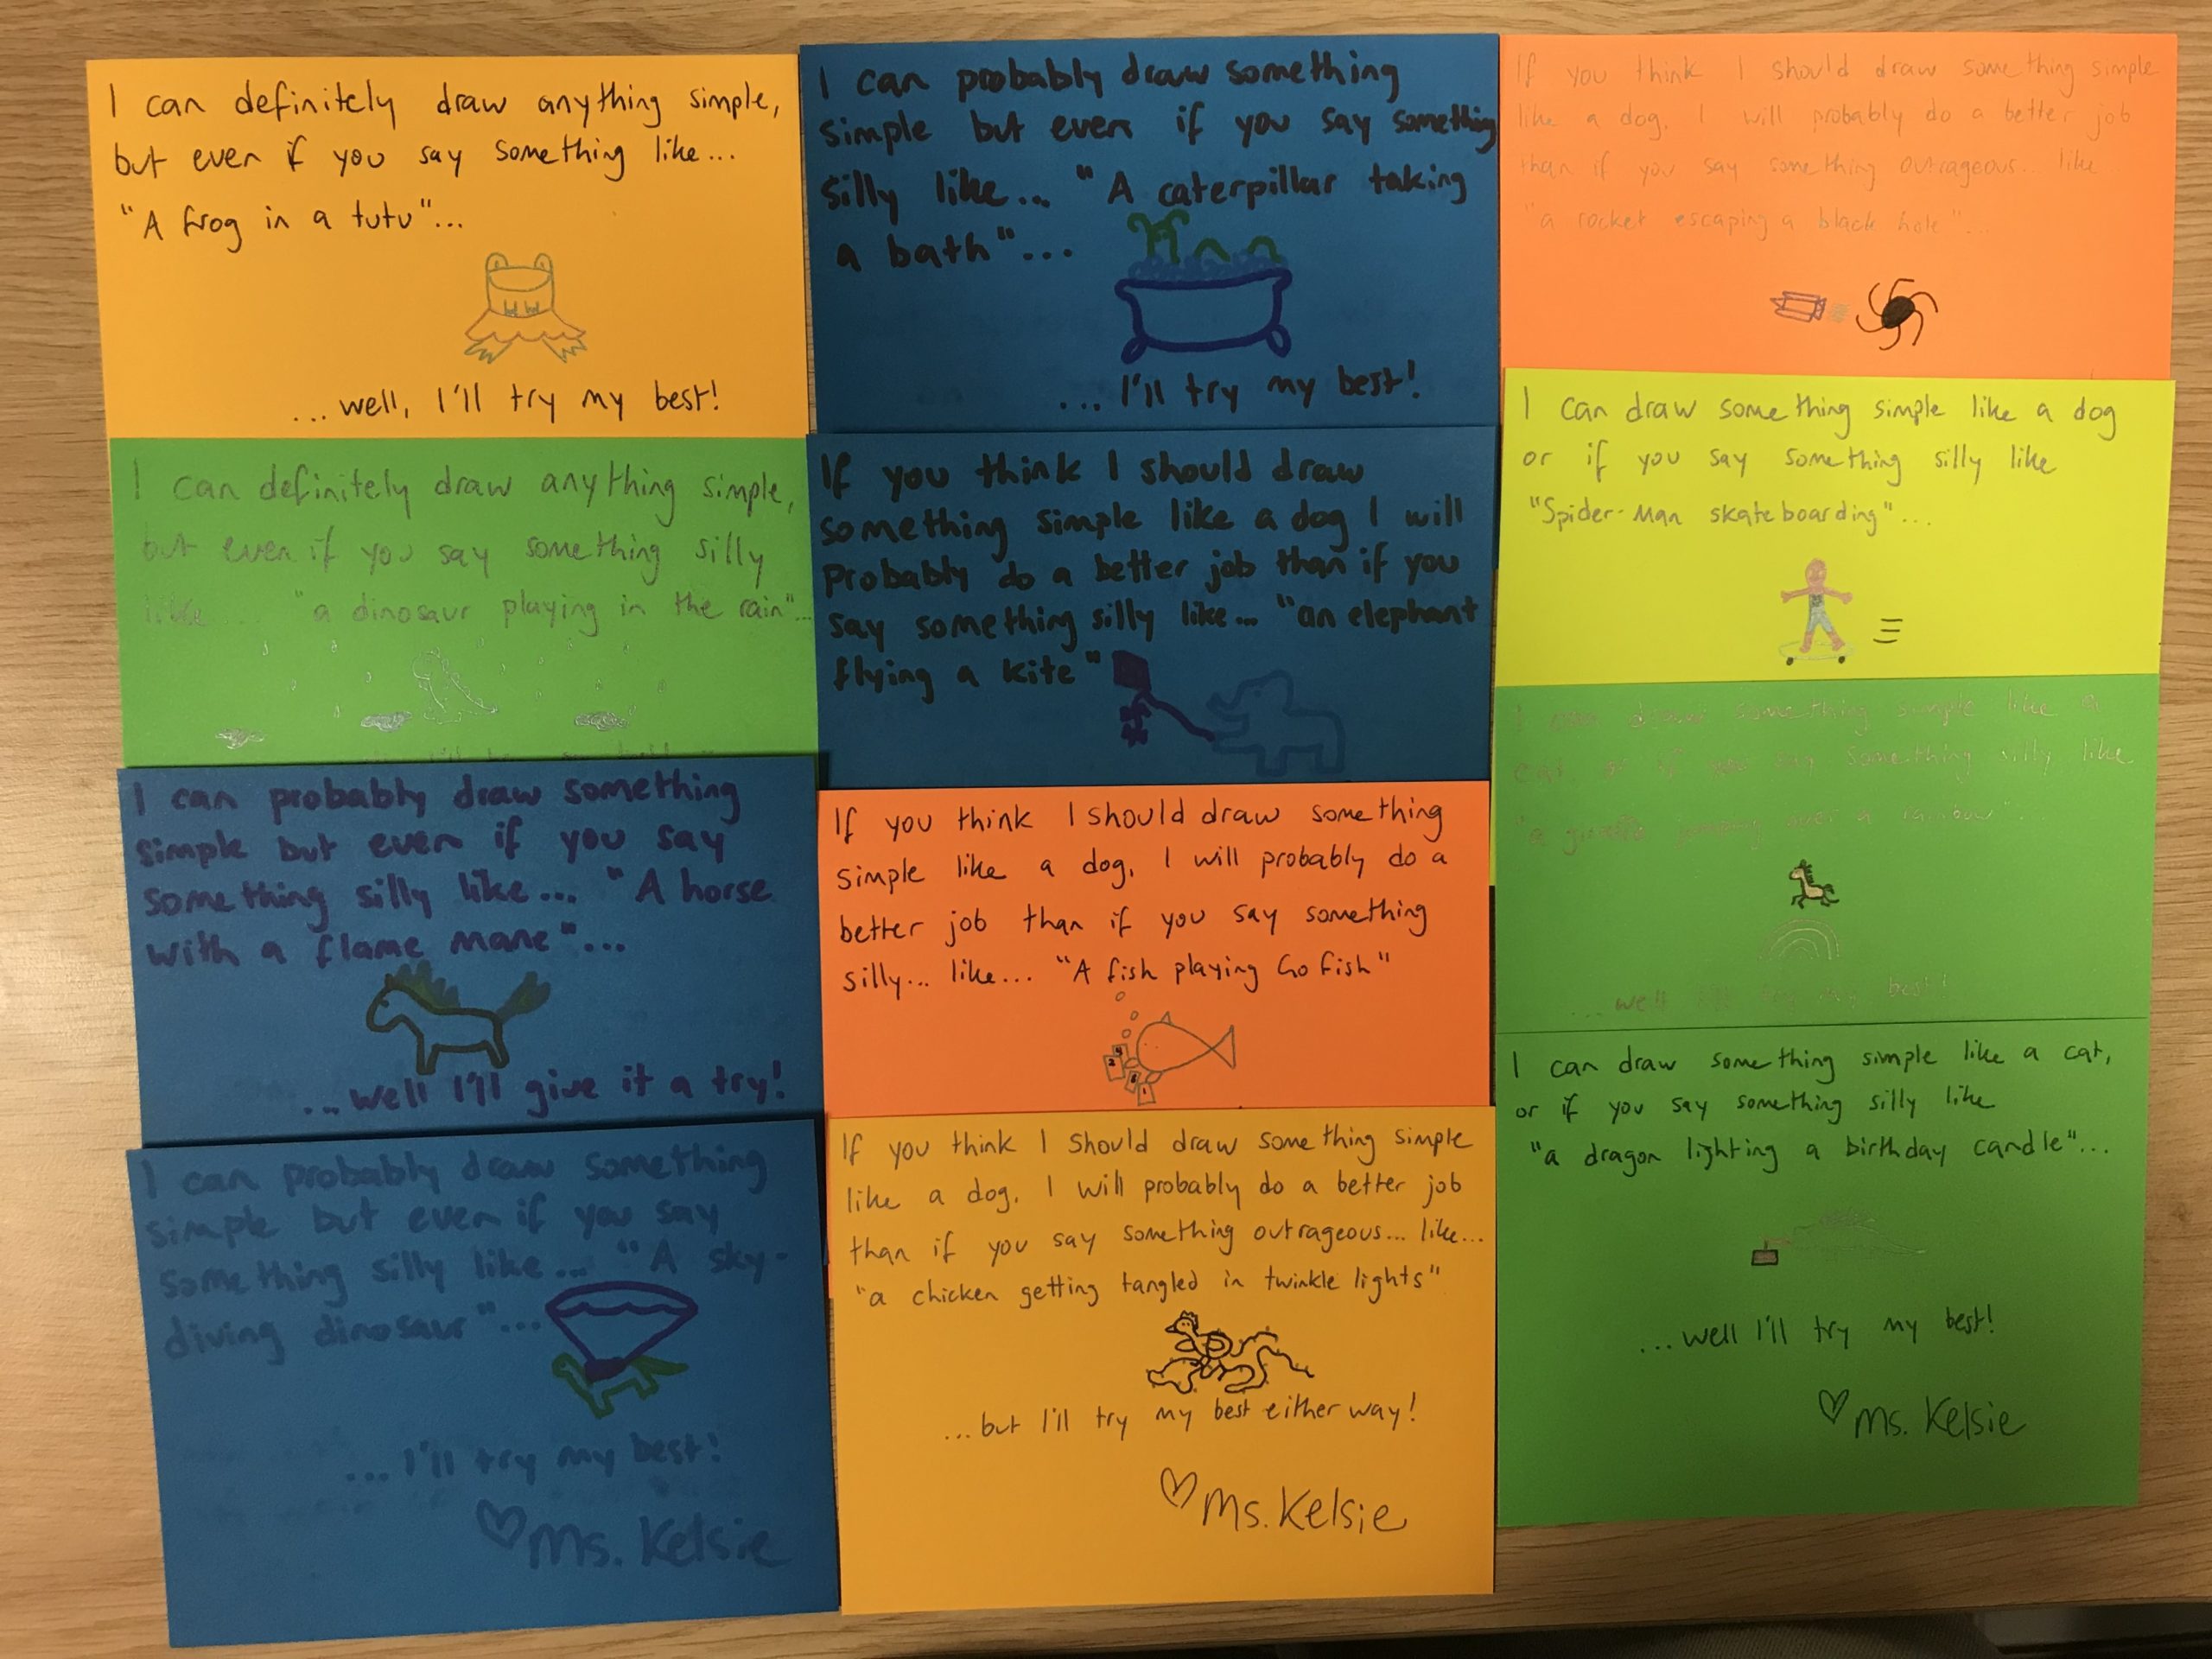 I can definitely draw anything simple,
but even if you say something like...
"A frog in a tutu"...
...well, I'll try my best!
I can definitely draw anything simple,
but even if you say something silly
like... "a dinosaur playing in the rain"...
I can probably draw something
simple but even if you say
something silly like... "A horse
with a flame mane"...
...well I'll give it a try!
I can probably draw something
simple but even if you say
something silly like... "A sky-
diving dinosaur"...
...I'll try my best!
♡ Ms. Kelsie
I can probably draw something
simple but even if you say something
silly like... "A caterpillar taking
a bath"...
...I'll try my best!
If you think I should draw
something simple like a dog I will
probably do a better job than if you
say something silly like... "an elephant
flying a kite"
If you think I should draw something
simple like a dog, I will probably do a
better job than if you say something
silly... like... "A fish playing Go Fish"
4
2
1
If you think I should draw something simple
like a dog, I will probably do a better job
than if you say something outrageous... like...
"a chicken getting tangled in twinkle lights"
...but I'll try my best either way!
♡ Ms. Kelsie
If you think I should draw something simple
like a dog, I will probably do a better job
than if you say something outrageous... like...
"a rocket escaping a black hole"...
I can draw something simple like a dog
or if you say something silly like
"Spider-Man skateboarding"...
I can draw something simple like a
cat, or if you say something silly like
"a giraffe jumping over a rainbow"...
...well I'll try my best!
I can draw something simple like a cat,
or if you say something silly like
"a dragon lighting a birthday candle"...
...well I'll try my best!
♡ Ms. Kelsie